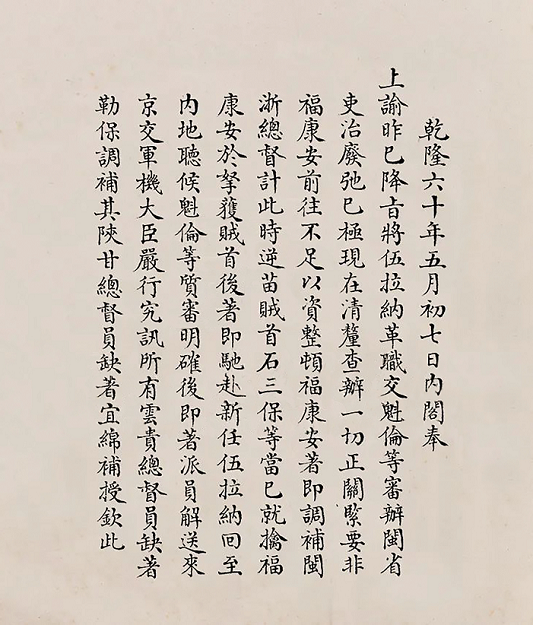 乾隆六十年五月初七日內閣奉
上諭昨已降旨將伍拉納革職交魁倫等審辦閩省
吏治廢弛已極現在清釐查辦一切正關緊要非
福康安前往不足以資整頓福康安著即調補閩
浙總督計此時逆苗賊首石三保等當已就擒福
康安於拏獲賊首後著即馳赴新任伍拉納回至
内地聽候魁倫等質審明確後即著派員解送來
京交軍機大臣嚴行究訊所有雲貴總督員缺著
勒保調補其陝甘總督員缺著宜綿補授欽此